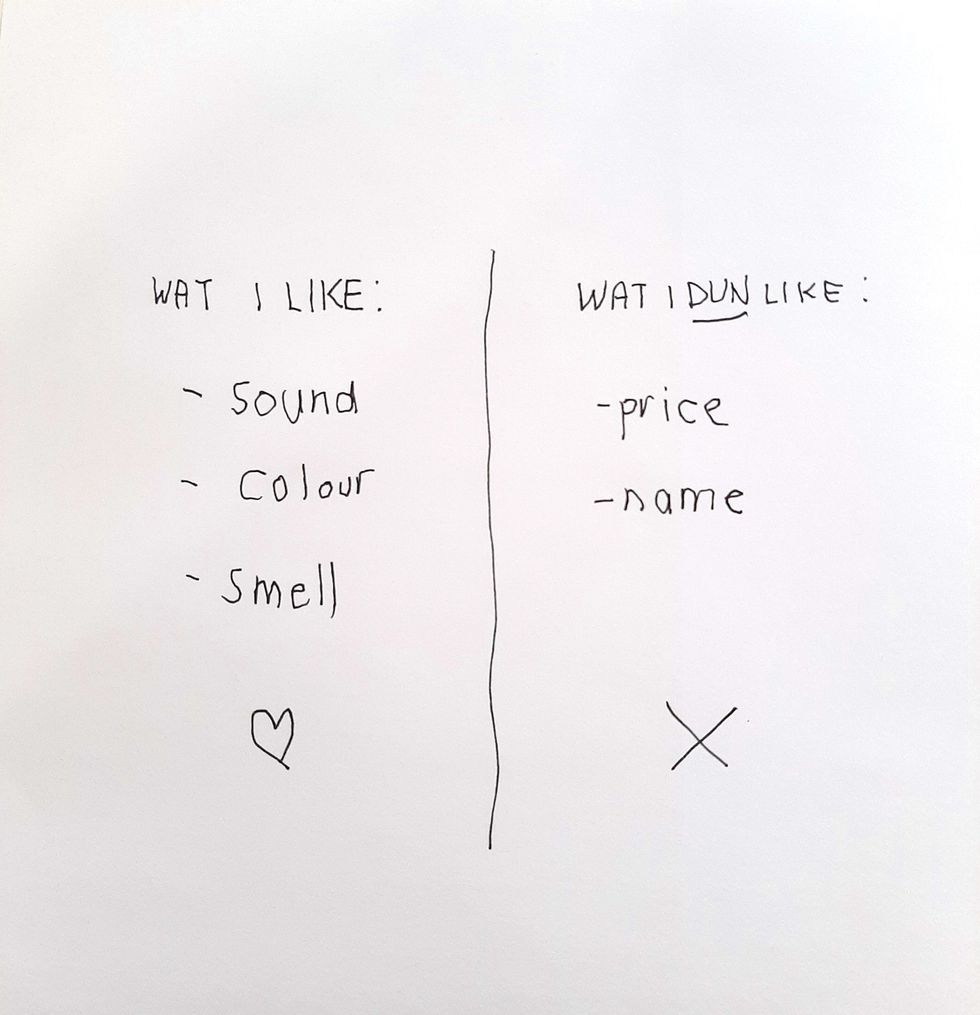 WAT I LIKE:
- Sound
- Colour
- Smell
WAT I DUN LIKE:
-price
-name